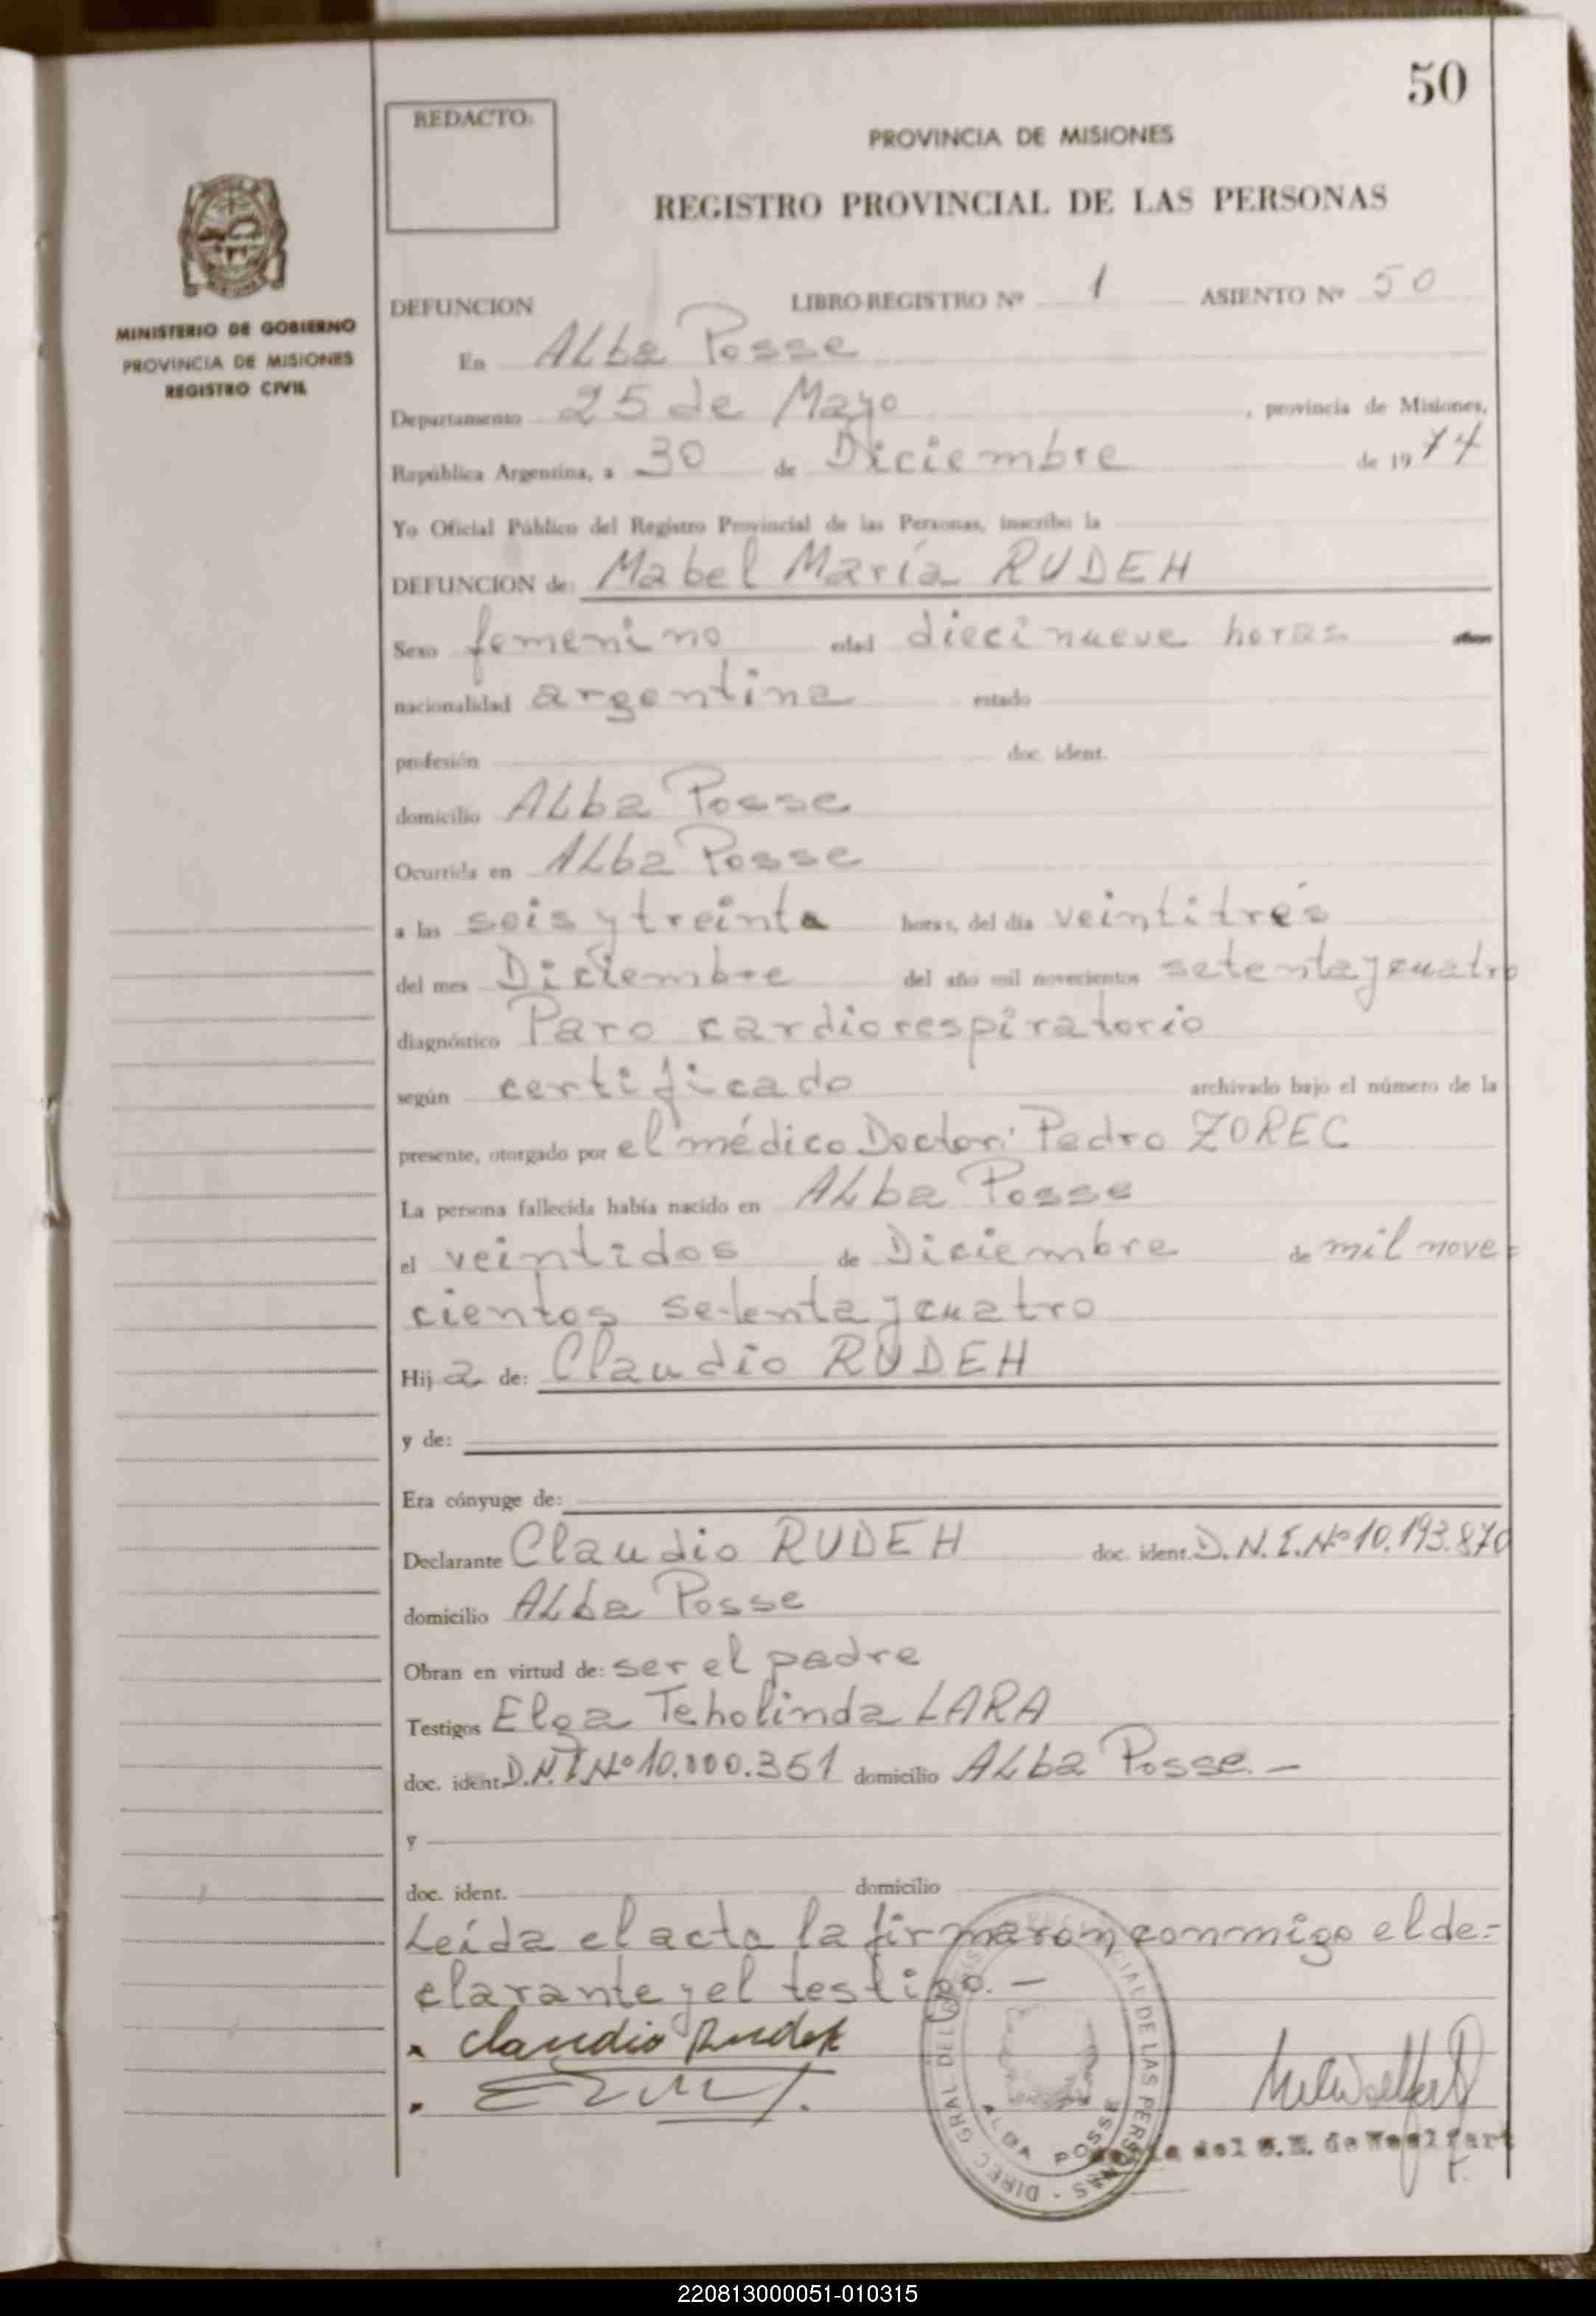 50
REDACTO:
PROVINCIA DE MISIONES
REGISTRO PROVINCIAL DE LAS PERSONAS
MINISTERIO DE GOBIERNO
PROVINCIA DE MISIONES
REGISTRO CIVIL
DEFUNCION LIBRO-REGISTRO Nº 1 ASIENTO Nº 50
En Alba Posse
Departamento 25 de Mayo , provincia de Misiones,
República Argentina, a 30 de Diciembre de 1974
Yo Oficial Público del Registro Provincial de las Personas, inscribo la
DEFUNCION de: Mabel María RUDEH
Sexo femenino edad diecinueve horas
nacionalidad argentina estado
profesión doc. ident.
domicilio Alba Posse
Ocurrida en Alba Posse
a las seis y treinta horas, del día veintitrés
del mes Diciembre del año mil novecientos setenta y cuatro
diagnóstico Paro cardiorespiratorio
según certificado archivado bajo el número de la
presente, otorgado por el médico Doctor: Pedro ZOREC
La persona fallecida había nacido en Alba Posse
el veintidos de Diciembre de mil nove=
cientos setenta y cuatro
Hija de: Claudio RUDEH
y de:
Era cónyuge de:
Declarante Claudio RUDEH doc. ident. D.N.I.Nº 10.193.870
domicilio Alba Posse
Obran en virtud de: ser el padre
Testigos Elga Teholinda LARA
doc. ident. D.N.I.Nº 10.000.351 domicilio Alba Posse.—
y
doc. ident. domicilio
Leída el acta la firmaron conmigo el de=
clarante y el testigo.—
Claudio Rudek
DIREC. GRAL. DEL REGISTRO PROVINCIAL DE LAS PERSONAS
ALBA POSSE
del de Woelfart
220813000051-010315